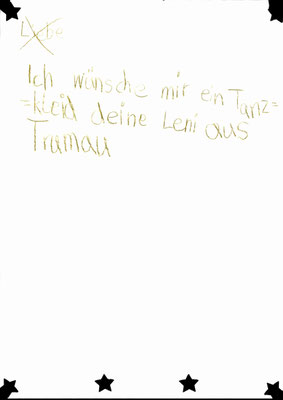 Ich wünsche mir ein Tanz=
=kleid deine Leni aus
Tramau